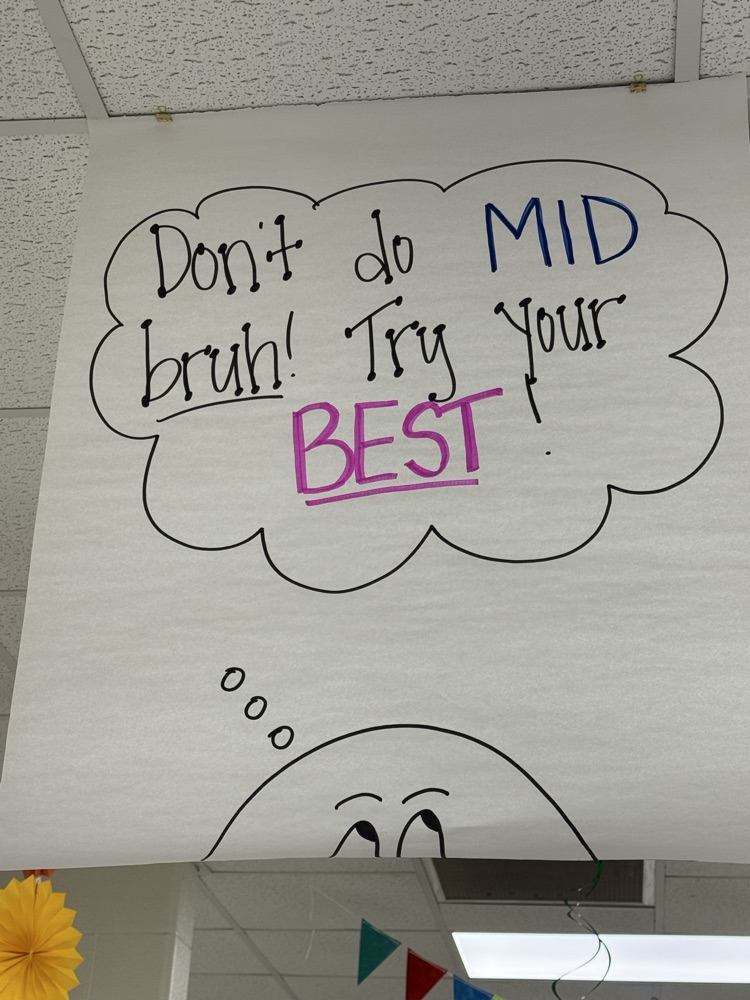 Don't do MID
bruh! Try your
BEST!